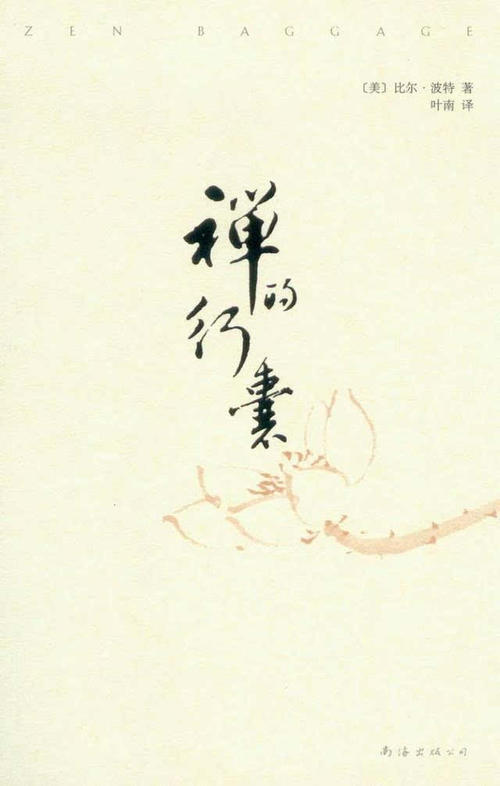 ZEN BAGGAGE
〔美〕比尔·波特 著
叶南 译
禅的
行囊
南海出版公司